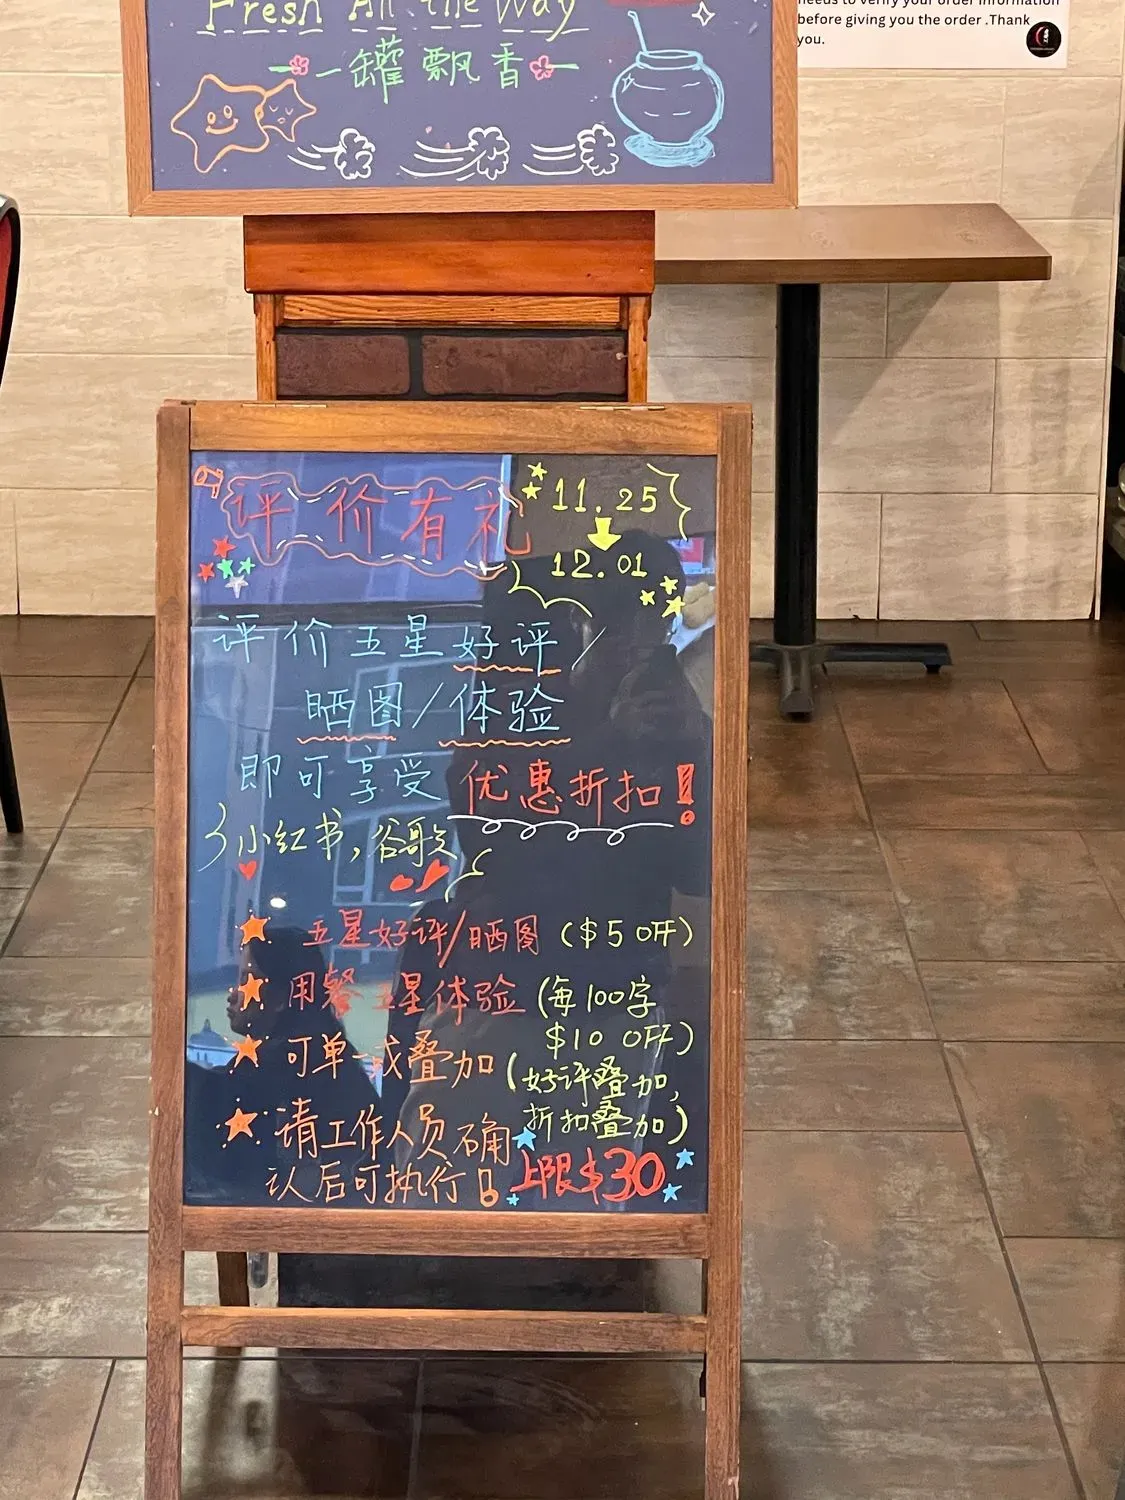 Fresh All the Way
一罐飘香
needs to verify your order information
before giving you the order .Thank
you.
评价有礼
11.25
12.01
评价五星好评/
晒图/体验
即可享受 优惠折扣!
小红书,谷歌
五星好评/晒图 ($5 OFF)
用餐五星体验 (每100字
$10 OFF)
可单一或叠加 (好评叠加,
折扣叠加)
请工作人员确
认后可执行!
上限$30